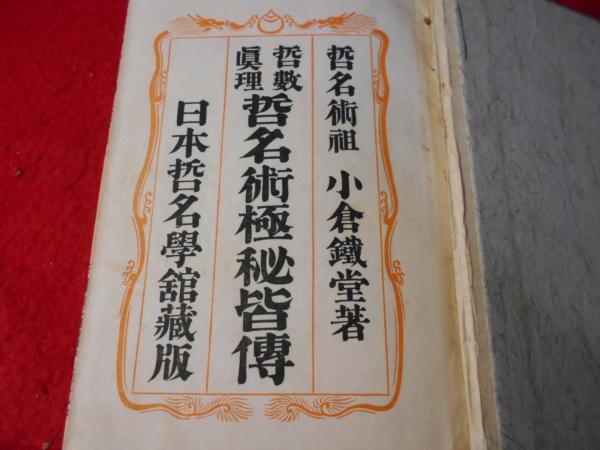 哲名術祖 小倉鐵堂著
哲數眞理 哲名術極秘皆傳
日本哲名學舘藏版